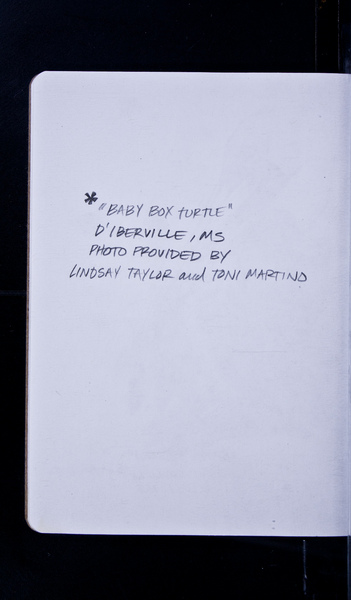 * "BABY BOX TURTLE"
D'IBERVILLE, MS
PHOTO PROVIDED BY
LINDSAY TAYLOR and TONI MARTINO